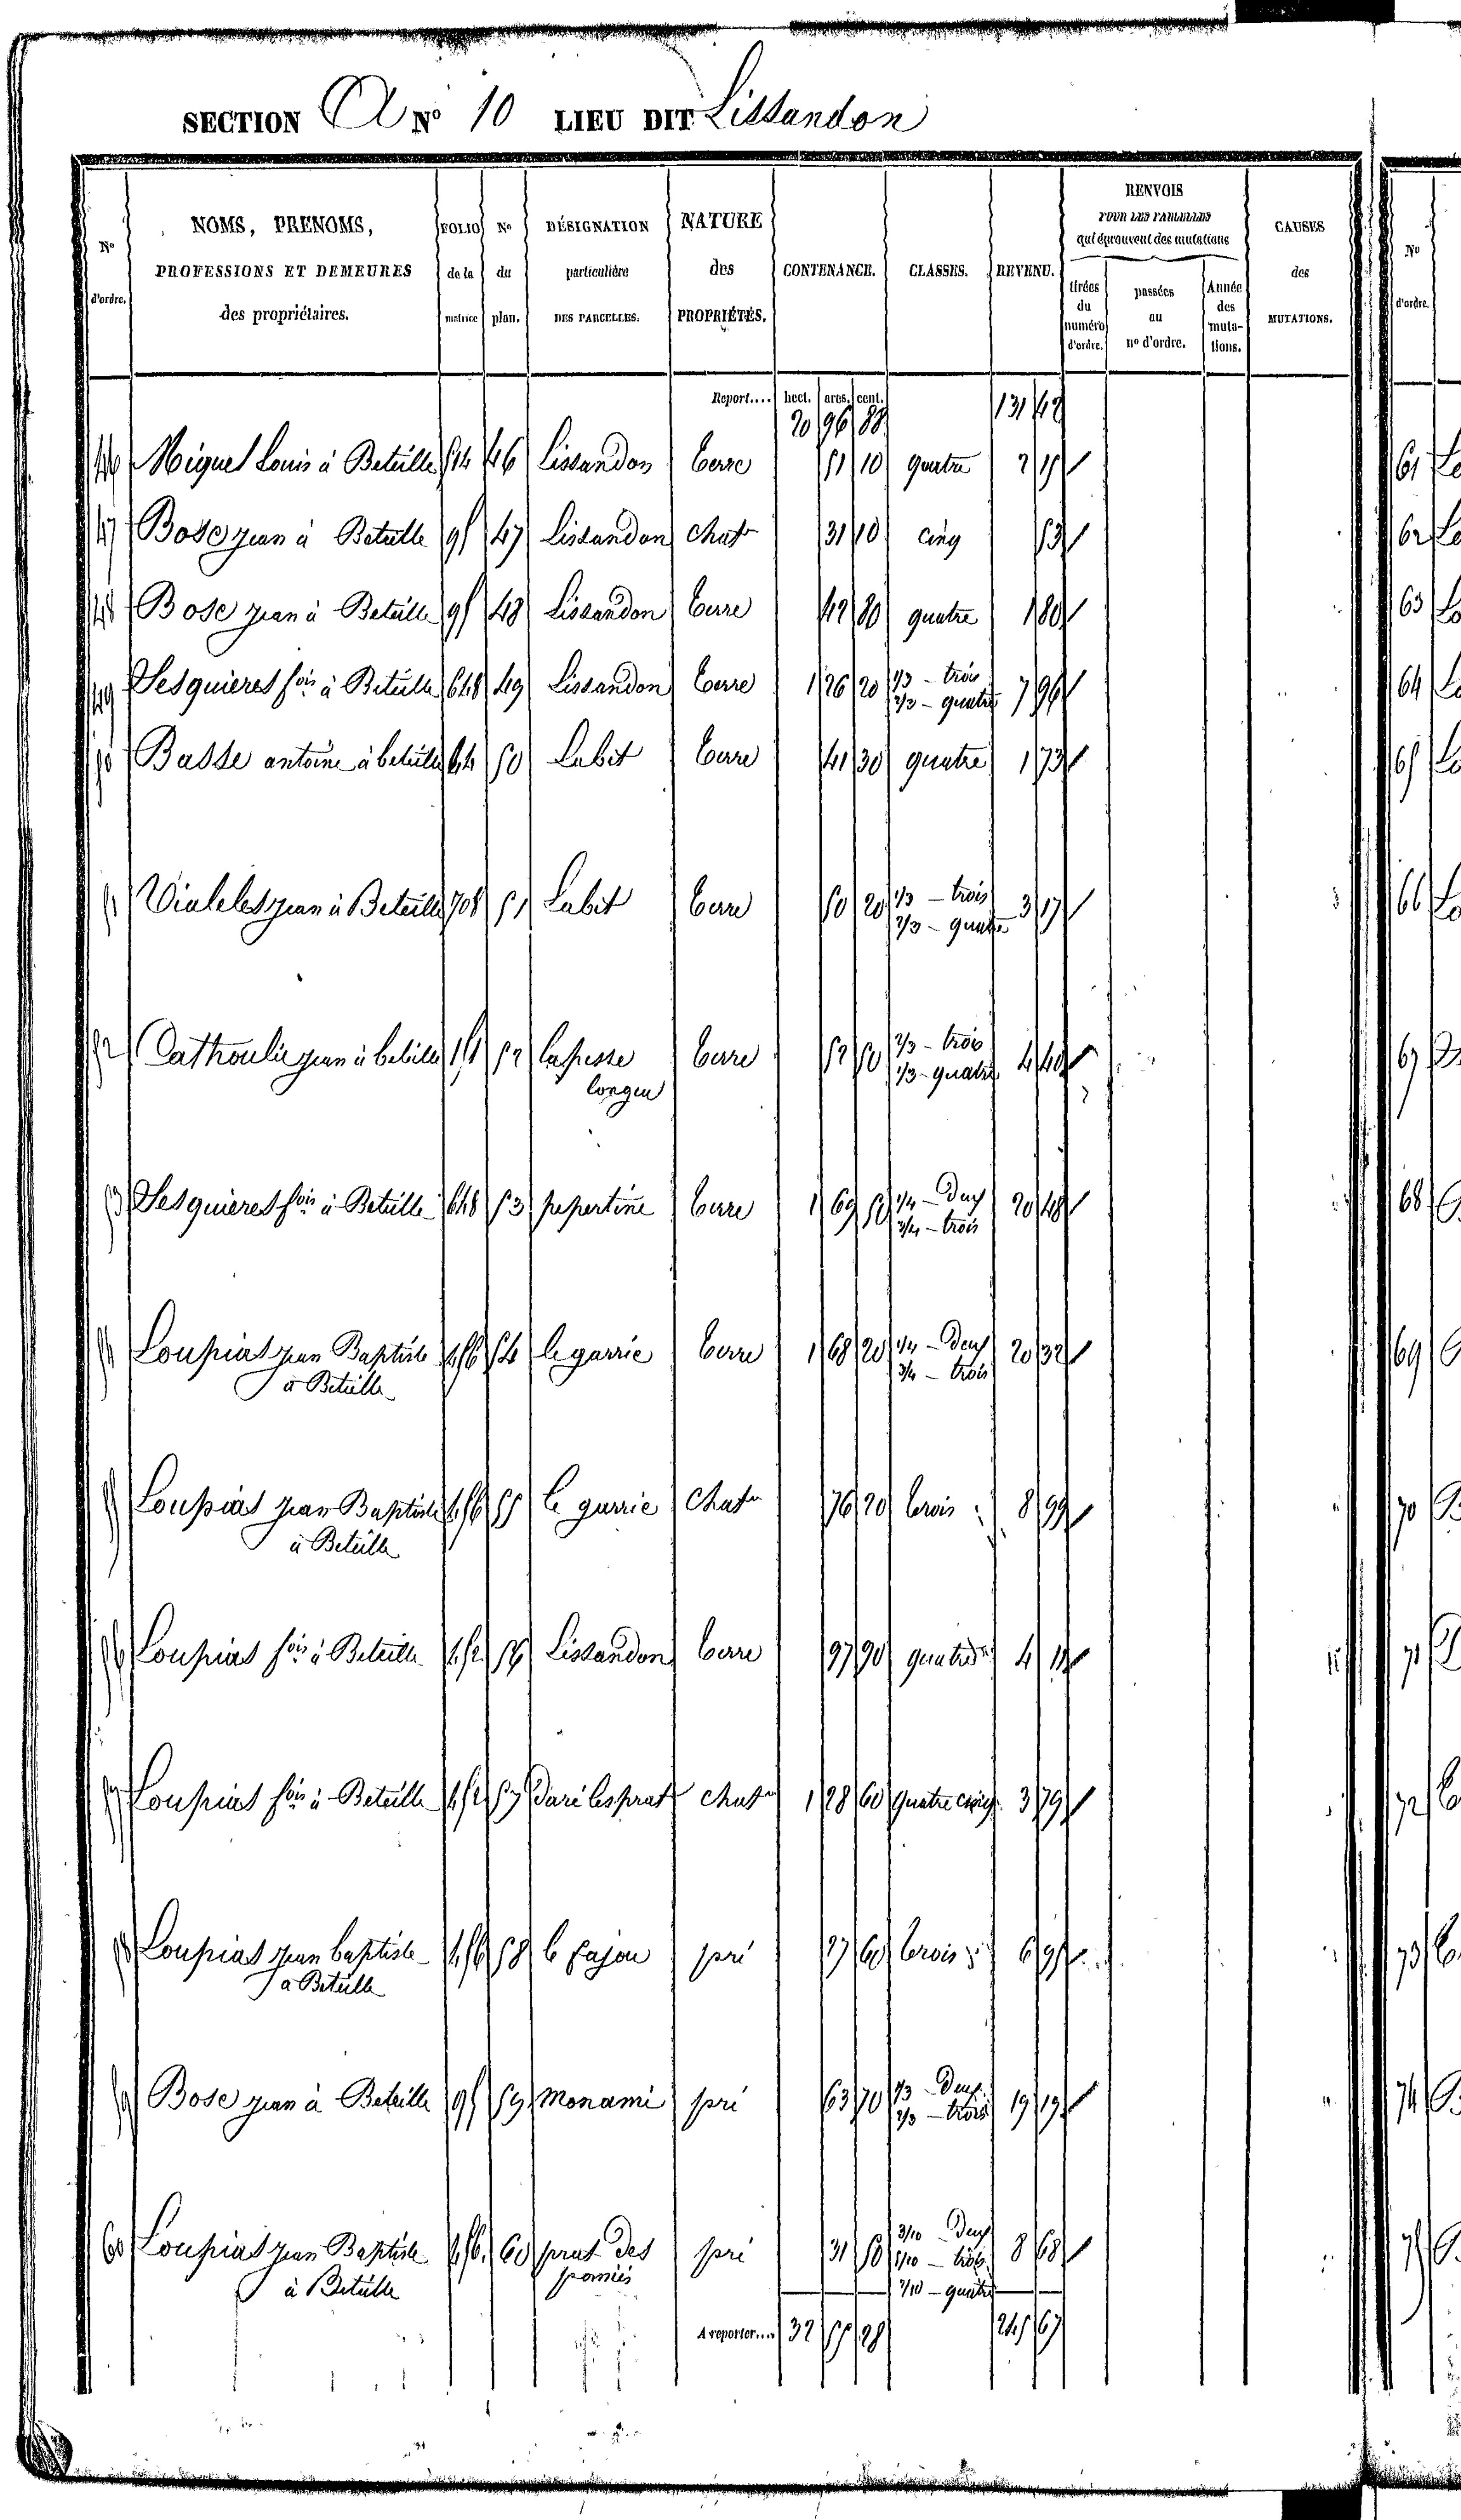 SECTION A N° 10 LIEU DIT Lissandon
N° d'ordre. NOMS, PRENOMS, PROFESSIONS ET DEMEURES des propriétaires. FOLIO de la matrice N° du plan. DÉSIGNATION particulière DES PARCELLES. NATURE des PROPRIÉTÉS. CONTENANCE. CLASSES. REVENU. RENVOIS POUR LES PARCELLES qui éprouvent des mutations tirées du numéro d'ordre. passées au n° d'ordre. Année des mutations. CAUSES des MUTATIONS. N° d'ordre.
Report.... hect. ares. cent.
20 96 88 131 42
46 Miquel Louis à Beteille 514 46 Lissandon terre 51 10 quatre 2 15
47 Bose jean à Beteille 95 47 Lissandon chatr 31 10 cinq 53
48 Bose jean à Beteille 95 48 Lissandon terre 42 80 quatre 1 80
49 Sesquieres fois à Beteille 648 49 Lissandon terre 1 26 20 1/3 - trois 7 96
2/3 - quatre
50 Basse antoine à beteille 64 50 Labit terre 41 30 quatre 1 73
51 Vialelet jean à Beteille 708 51 Labit terre 50 20 1/3 - trois 3 17
2/3 - quatre
52 Cathoulie jean à beteille 151 52 terre 52 50 2/3 - trois 4 40
longeu 1/3 - quatre
53 Sesquieres fois à Beteille 648 53 pepertine terre 1 69 50 1/4 - Deux 20 48
3/4 - trois
54 Loupias jean Baptiste 456 54 le garric terre 1 68 20 1/4 - Deux 20 32
à Beteille 3/4 - trois
55 Loupias jean Baptiste 456 55 le garric chatr 76 20 trois 8 99
à Beteille
56 Loupias fois à Beteille 452 56 Lissandon terre 97 90 quatre 4 11
57 Loupias fois à Beteille 452 57 Daré les prats chatr 1 28 60 quatre cinq 3 79
58 Loupias jean baptiste 456 58 le fajou pré 27 60 trois 6 95
à Beteille
59 Bose jean à Beteille 95 59 monami pré 63 70 1/3 - Deux 19 19
2/3 - trois
60 Loupias jean Baptiste 456 60 prat des pré 31 50 3/10 - Deux 8 68
à Beteille pomiés 5/10 - trois
2/10 - quatre
A reporter.... 32 55 28 245 67
61
62
63
64
65
66
67
68
69
70
71
72
73
74
75